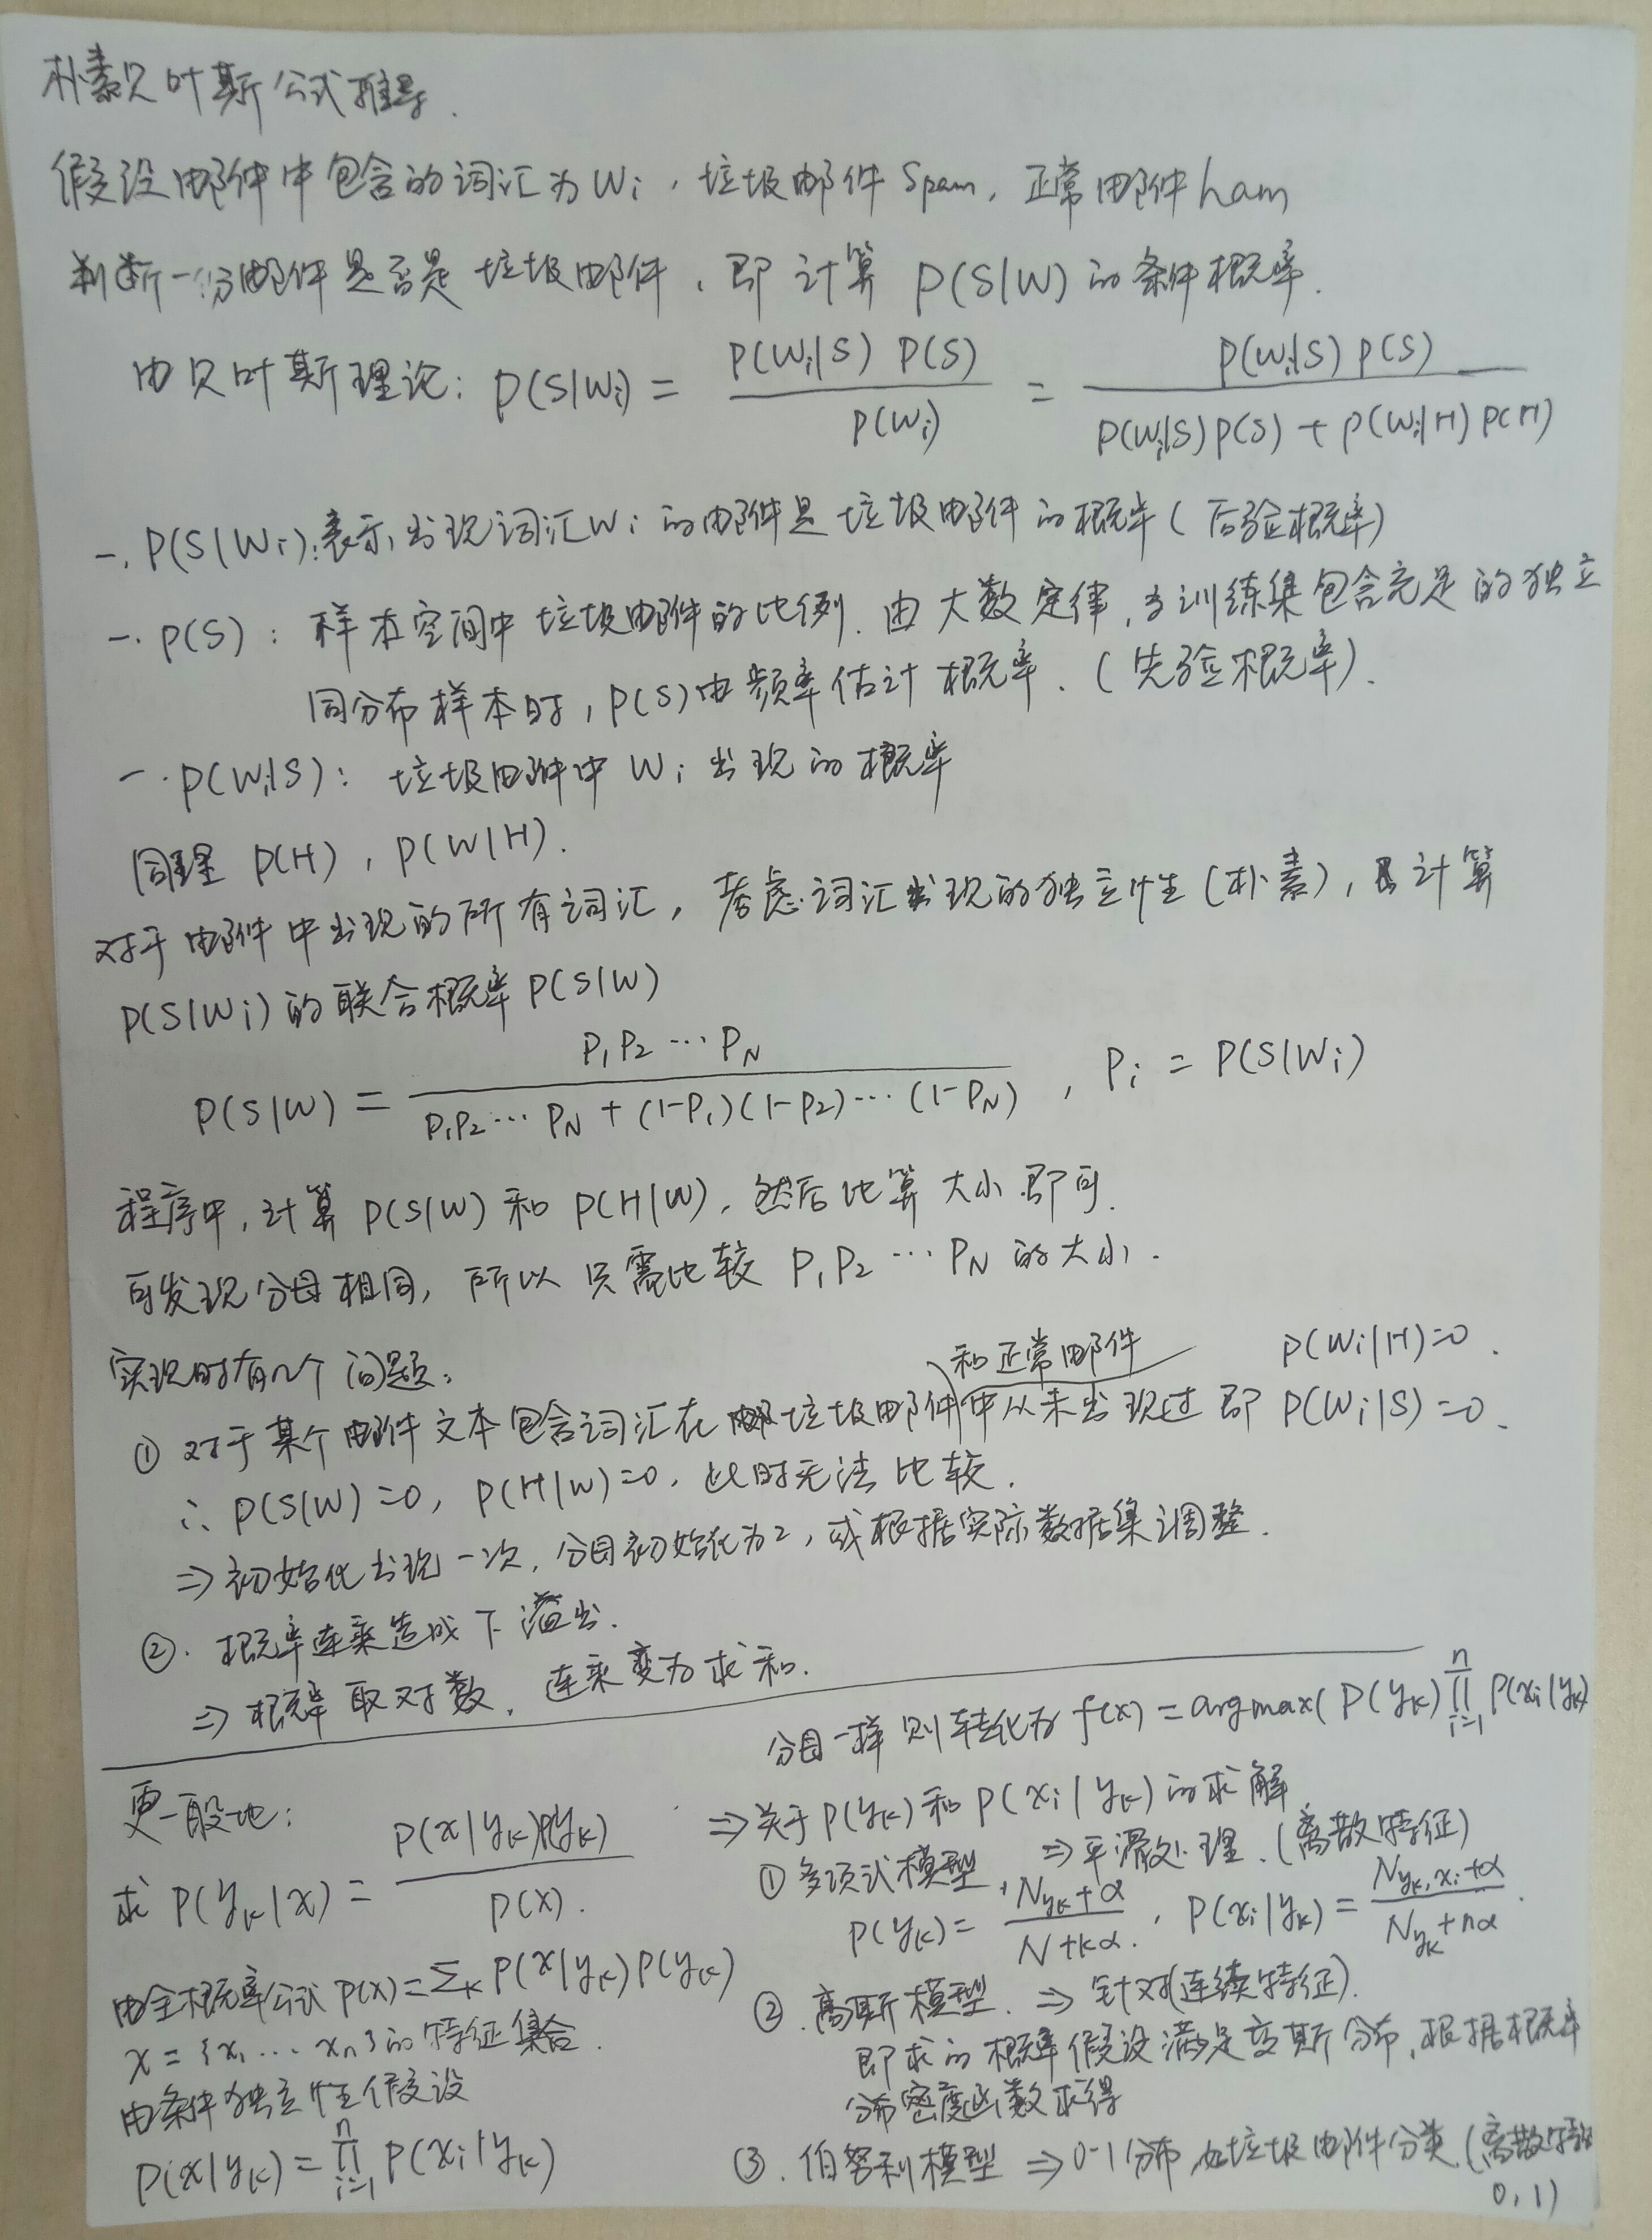 朴素贝叶斯公式推导.
假设邮件中包含的词汇为Wi，垃圾邮件Spam，正常邮件ham
判断一份邮件是否是垃圾邮件，即计算 P(S|W) 的条件概率.
由贝叶斯理论: P(S|Wi) = P(Wi|S) P(S) / P(Wi) = P(Wi|S) P(S) / P(Wi|S)P(S) + P(Wi|H) P(H)
一. P(S|Wi): 表示出现词汇Wi的邮件是垃圾邮件的概率（后验概率）
一. P(S): 样本空间中垃圾邮件的比例. 由大数定律，当训练集包含充足的独立
同分布样本时，P(S)由频率估计概率.（先验概率）.
一. P(Wi|S): 垃圾邮件中Wi出现的概率
同理 P(H), P(W|H).
对于邮件中出现的所有词汇，考虑词汇出现的独立性（朴素），计算
P(S|Wi)的联合概率P(S|W)
P(S|W) = P₁P₂ ⋯ P_N / P₁P₂⋯ P_N + (1-P₁)(1-P₂)⋯ (1-P_N) , Pi = P(S|Wi)
程序中，计算 P(S|W) 和 P(H|W)，然后比算大小即可.
可发现分母相同，所以只需比较 P₁P₂ ⋯ P_N 的大小.
实现时有几个问题:
和正常邮件 P(Wi|H)=0.
① 对于某个邮件文本包含词汇在垃圾邮件中从未出现过即 P(Wi|S)=0.
∴ P(S|W)=0, P(H|W)=0, 此时无法比较.
⇒ 初始化出现一次，分母初始化为2，或根据实际数据集调整.
②. 概率连乘造成下溢出.
⇒ 概率取对数，连乘变为求和.
更一般地:
求 P(y_k|x) = P(x|y_k)P(y_k) / P(x).
由全概率公式 P(x)=Σ_k P(x|y_k)P(y_k)
x = {x₁ ⋯ x_n}的特征集合.
由条件独立性假设
P(x|y_k) = ∏_{i=1}^{n} P(x_i|y_k)
分母一样则转化为 f(x) = argmax( P(y_k) ∏_{i=1}^{n} P(x_i|y_k)
⇒ 关于 P(y_k) 和 P(x_i|y_k) 的求解
① 多项式模型, ⇒ 平滑处理.（离散特征）
P(y_k) = N_{y_k}+α / N+kα. , P(x_i|y_k) = N_{y_k,x_i}+α / N_{y_k}+nα.
②. 高斯模型. ⇒ 针对(连续特征).
即求的概率假设满足高斯分布，根据概率
分布密度函数求得
③. 伯努利模型 ⇒ 0-1分布，如垃圾邮件分类（离散特征
0, 1)